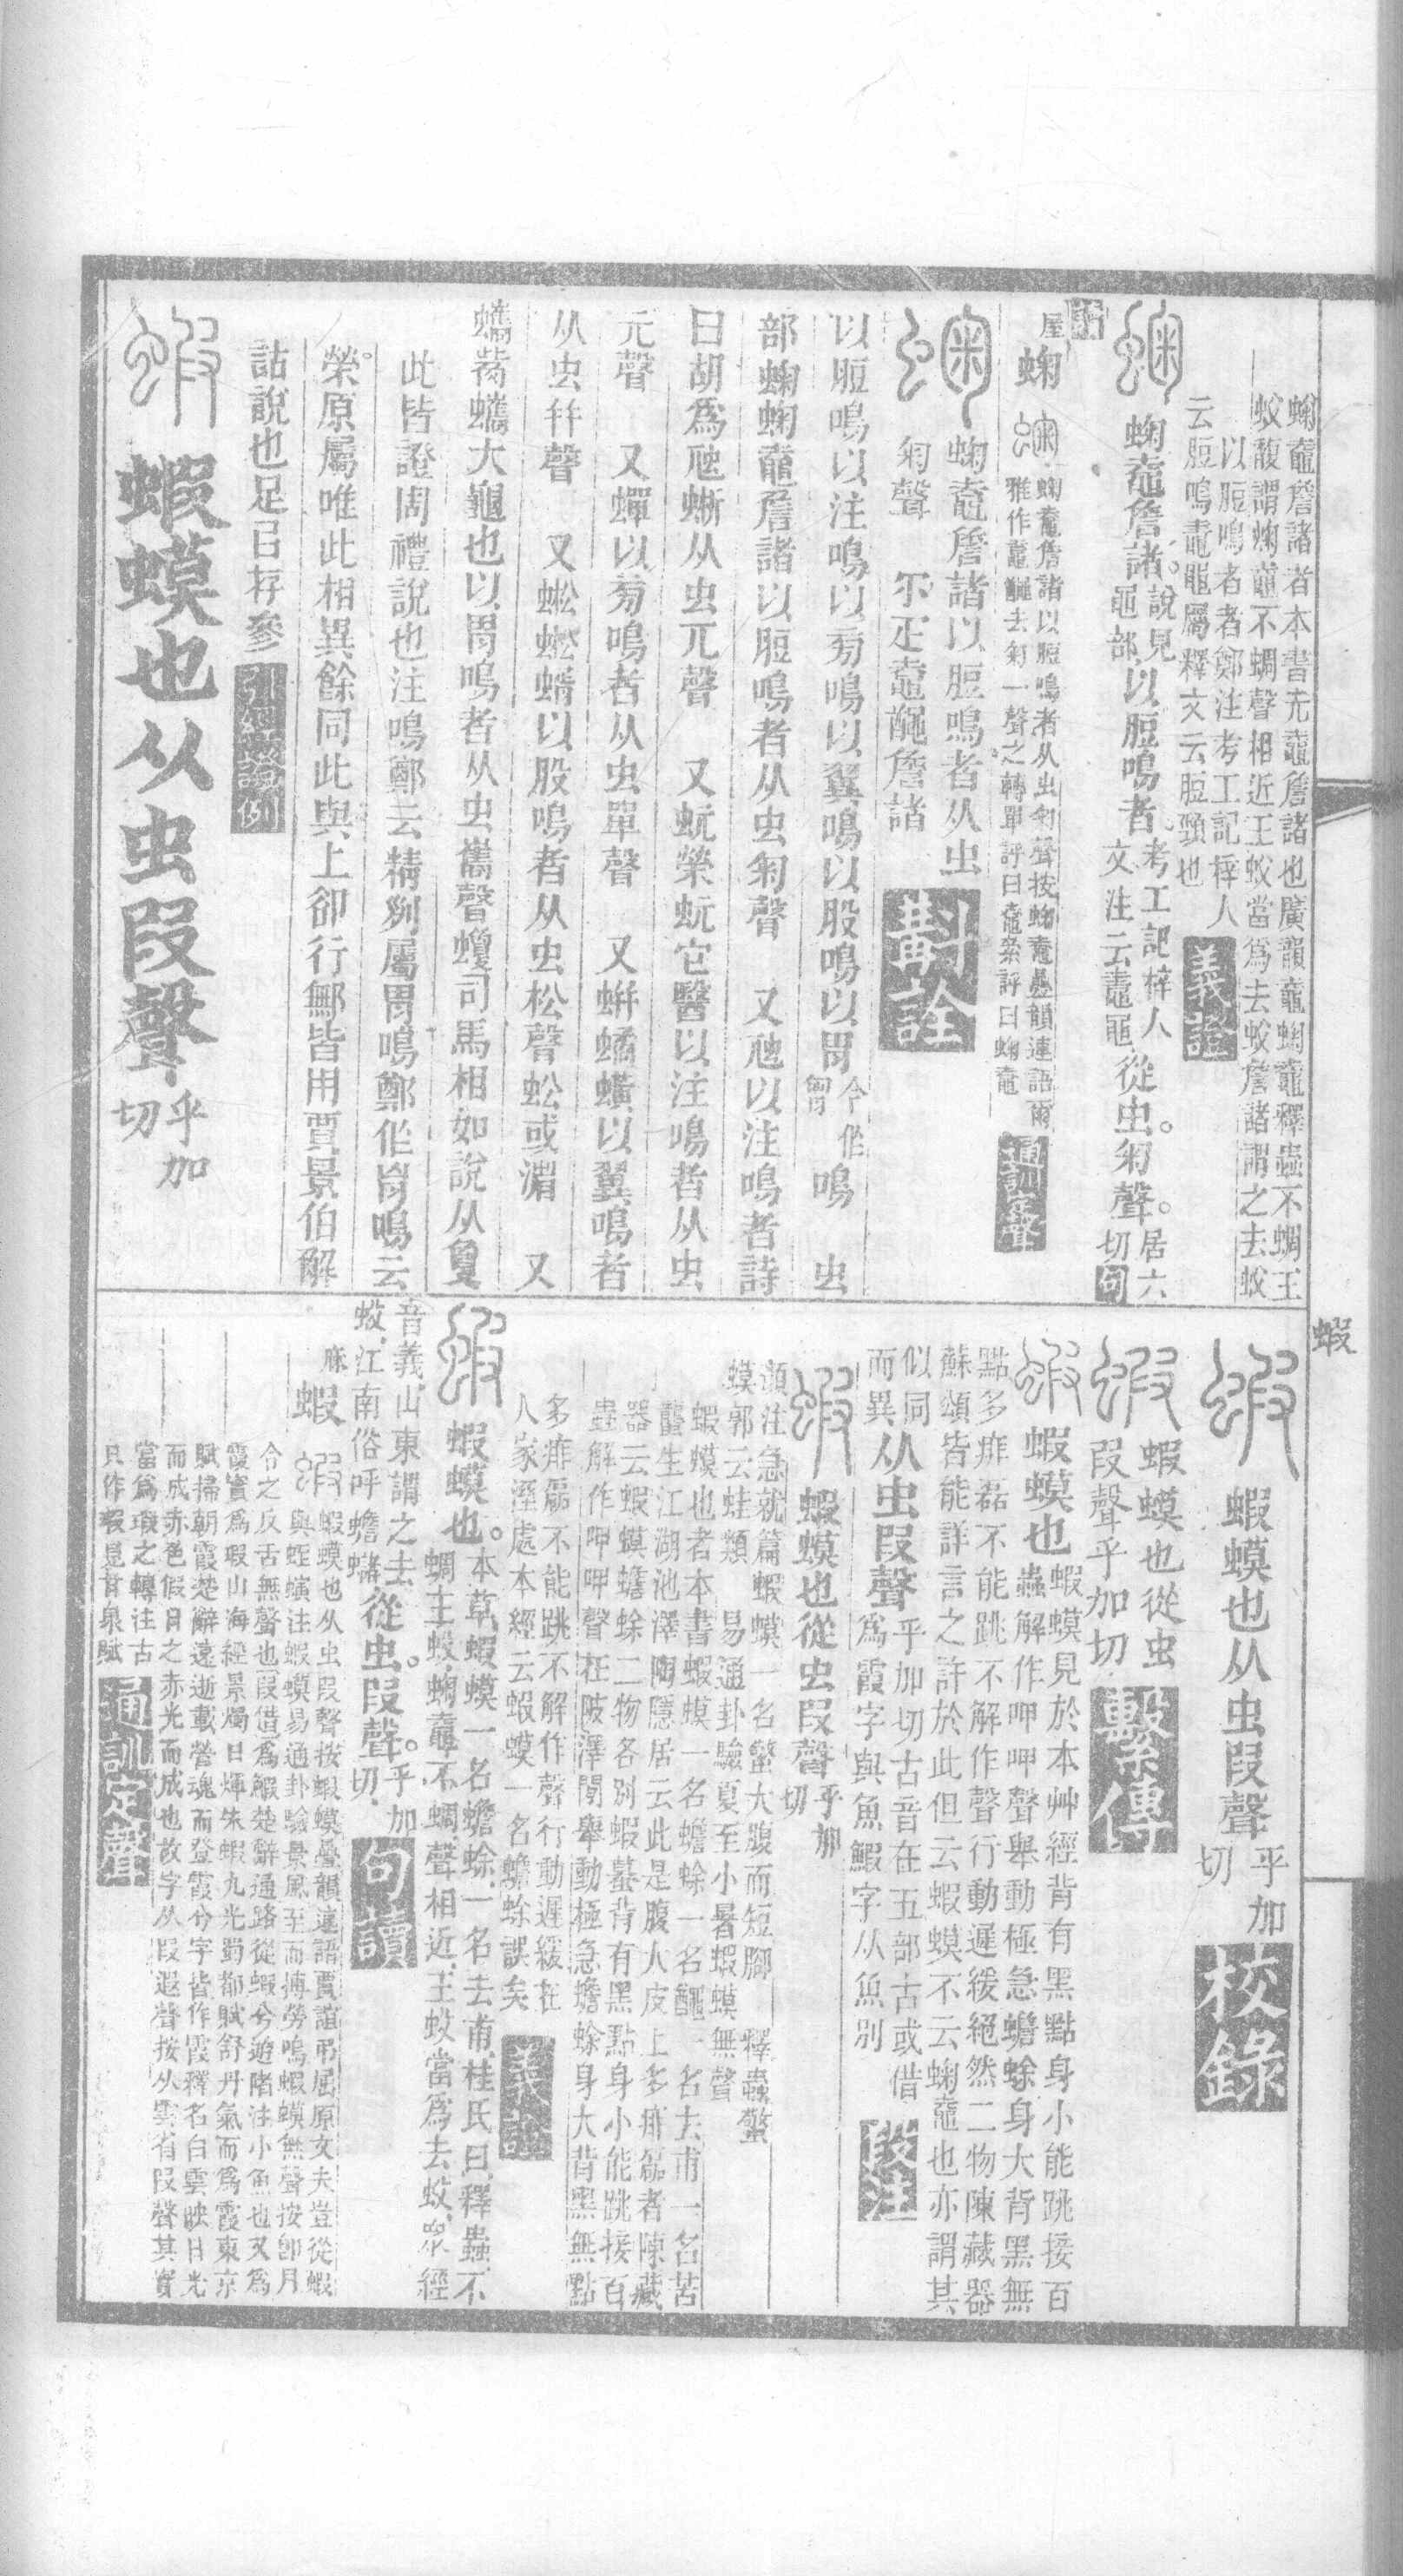 蜠鼀詹諸者本書尢鼀詹諸也廣韻鼀蜠鼀釋蟲不蜩王
蚥馥謂蜠鼀不蜩聲相近王蚥當爲去蚥詹諸謂之去蚥
以脰鳴者者鄭注考工記梓人
云脰鳴鼃黽屬釋文云脰頸也
義證
蜠鼀詹諸。說見黽部以脰鳴者、考工記梓人文注云鼃黽從虫。匊聲。居六切
句讀
屋
蜠鼀詹諸以脰鳴者从虫匊聲按蜠鼀疊韻連語爾
雅作鼀䵸去匊一聲之轉單評曰鼀絫評曰蜠鼀
通訓定聲
蜠鼀詹諸以脰鳴者从虫
匊聲 不疋鼀䵸詹諸
斠詮
以脰鳴以注鳴以旁鳴以翼鳴以股鳴以胃今作𦞤鳴 虫
部蜠蜠鼀詹諸以脰鳴者从虫匊聲 又虺以注鳴者詩
曰胡爲虺蜥从虫兀聲 又蚖榮蚖它醫以注鳴者从虫
元聲 又蟬以旁鳴者从虫單聲 又蛢蟥以翼鳴者
从虫幷聲 又蜙蜙蝑以股鳴者从虫松聲蚣或渻 又
蠵觜蠵大龜也以胃鳴者从虫巂聲蠵司馬相如說从敻
此皆證周禮說也注鳴鄭云精列屬胃鳴鄭作𦞤鳴云
榮原屬唯此相異餘同此與上卻行鄦皆用賈景伯解
詁說也足㠯存參
引經證例
蝦蟆也从虫叚聲乎加切
蝦
蝦蟆也从虫叚聲乎加切
校錄
蝦蟆也從虫
叚聲乎加切
繫傳
蝦蟆也蝦蟆見於本艸經背有黑點身小能跳接百
蟲解作呷呷聲舉動極急蟾蜍身大背黑無
點多痱磊不能跳不解作聲行動遲緩絕然二物陳藏器
蘇頌皆能詳言之許於此但云蝦蟆不云蜠鼀也亦謂其
似同
而異从虫叚聲乎加切古音在五部古或借
爲霞字與魚鰕字从魚別
段注
蝦蟆也從虫叚聲乎加切
顏注急就篇蝦蟆一名螫大腹而短腳 釋蟲螫
蟆郭云蛙類 易通卦驗夏至小暑蝦蟆無聲
蝦蟆也者本書蝦蟆一名蟾蜍一名䵸一名去甫一名苦
蠪生江湖池澤陶隱居云此是腹大皮上多痱磊者陳藏
器云蝦蟆蟾蜍二物各別蝦蟇背有黑點身小能跳接百
蟲解作呷呷聲在陂澤閒舉動極急蟾蜍身大背黑無點
多痱磊不能跳不解作聲行動遲緩在
人家溼處本經云蝦蟆一名蟾蜍誤矣
義證
蝦蟆也。本草、蝦蟆一名蟾蜍、一名去甫、桂氏曰、釋蟲、不
蜩王蚥、蜠鼀不蜩、聲相近、王蚥當爲去蚥、眾經
音義、山東謂之去
蚥、江南俗呼蟾蠩從虫。叚聲。乎加切、
句讀
麻
蝦 蝦蟆也从虫叚聲按蝦蟆疊韻連語賈誼弔屈原文夫豈從蝦
與蛭螾注蝦蟆易通卦驗景風至而搏勞鳴蝦蟆無聲按卽月
令之反舌無聲也叚借爲鰕楚辭通路從蝦兮遊陼注小魚也又爲
霞實爲瑕山海經景燭日煇朱蝦九光蜀都賦舒丹氣而爲霞東京
賦掃朝霞楚辭遠逝載營魂而登霞兮字皆作霞釋名白雲映日光
而成赤色假日之赤光而成也故字从叚遐聲按从雲省叚聲其實
當爲瑕之轉注古
只作蝦見甘泉賦
通訓定聲